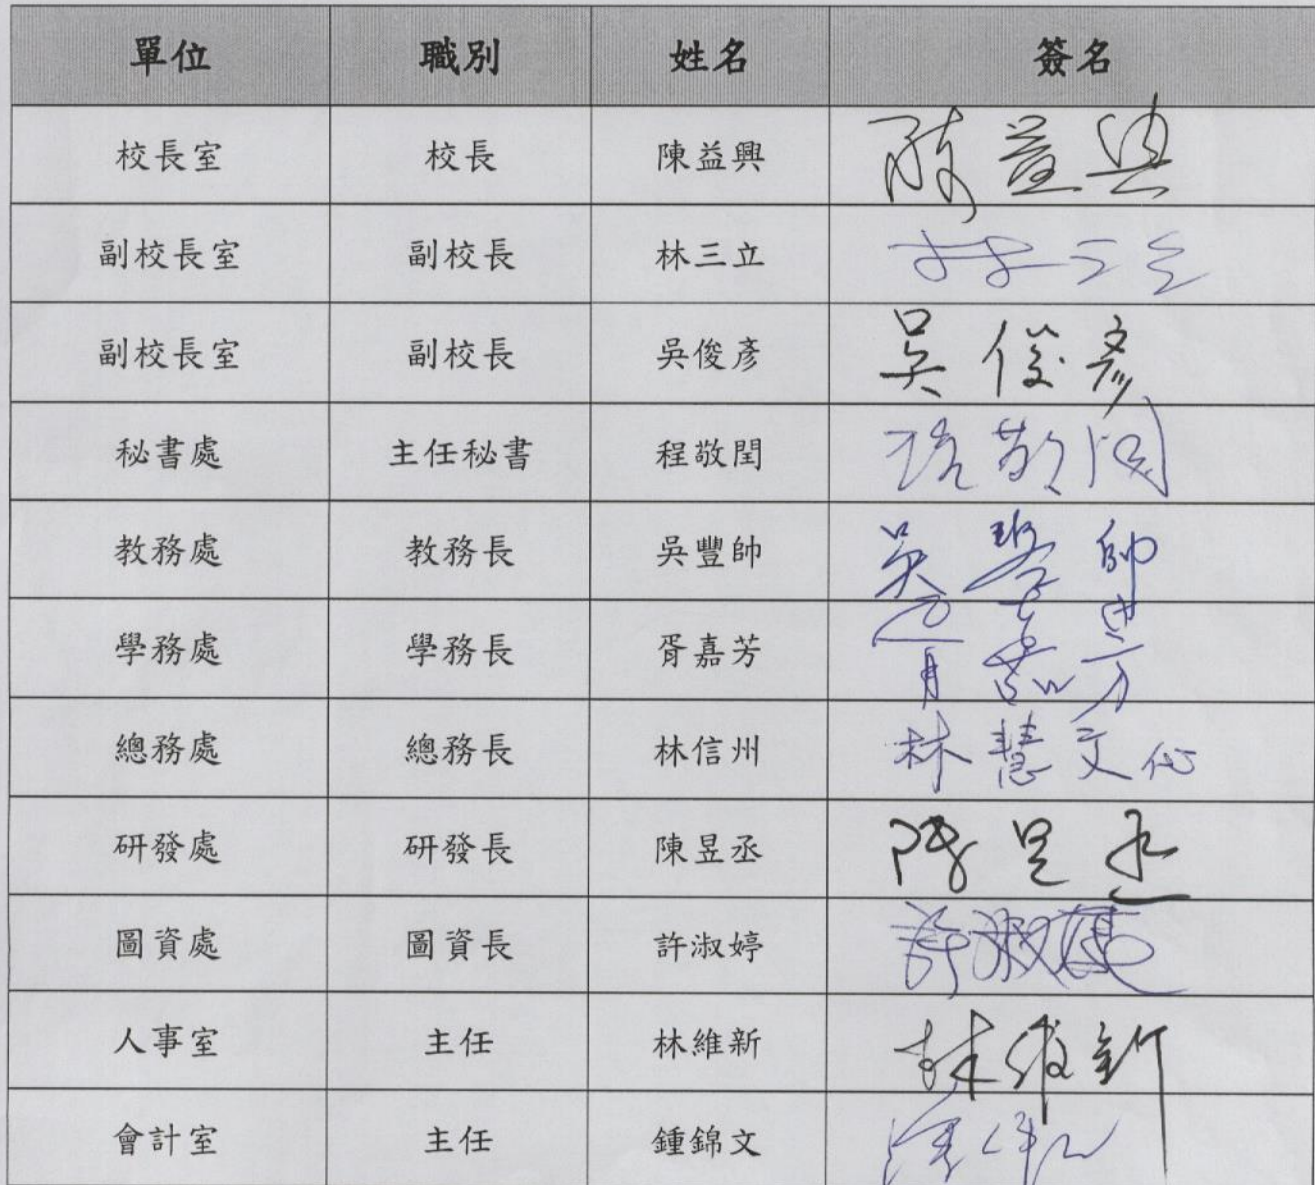 單位 職別 姓名 簽名
校長室 校長 陳益興 陳益興
副校長室 副校長 林三立 林三立
副校長室 副校長 吳俊彥 吳俊彥
秘書處 主任秘書 程敬閏 程敬閏
教務處 教務長 吳豐帥 吳豐帥
學務處 學務長 胥嘉芳 胥嘉芳
總務處 總務長 林信州 林慧文代
研發處 研發長 陳昱丞 陳昱丞
圖資處 圖資長 許淑婷 許淑婷
人事室 主任 林維新 林維新
會計室 主任 鍾錦文